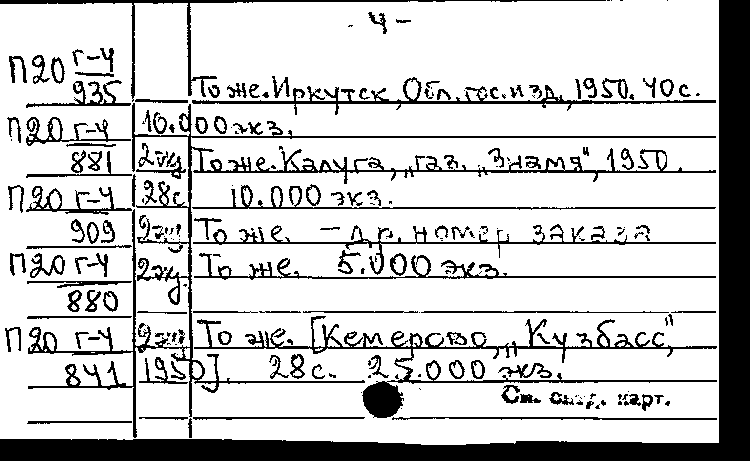 - 4 -
П20 г-4
935 То же. Иркутск, Обл. гос. изд., 1950. 40с.
П20 г-4 10.000 экз.
881 2экз То же. Калуга, "газ. "Знамя", 1950.
П20 г-4 28с 10.000 экз.
909 2экз То же. - др. номер заказа
П20 г-4 2экз. То же. 5.000 экз.
880
П20 г-4 2экз То же. [Кемерово, "Кузбасс",
841 1950]. 28с. 25.000 экз.
См. след. карт.